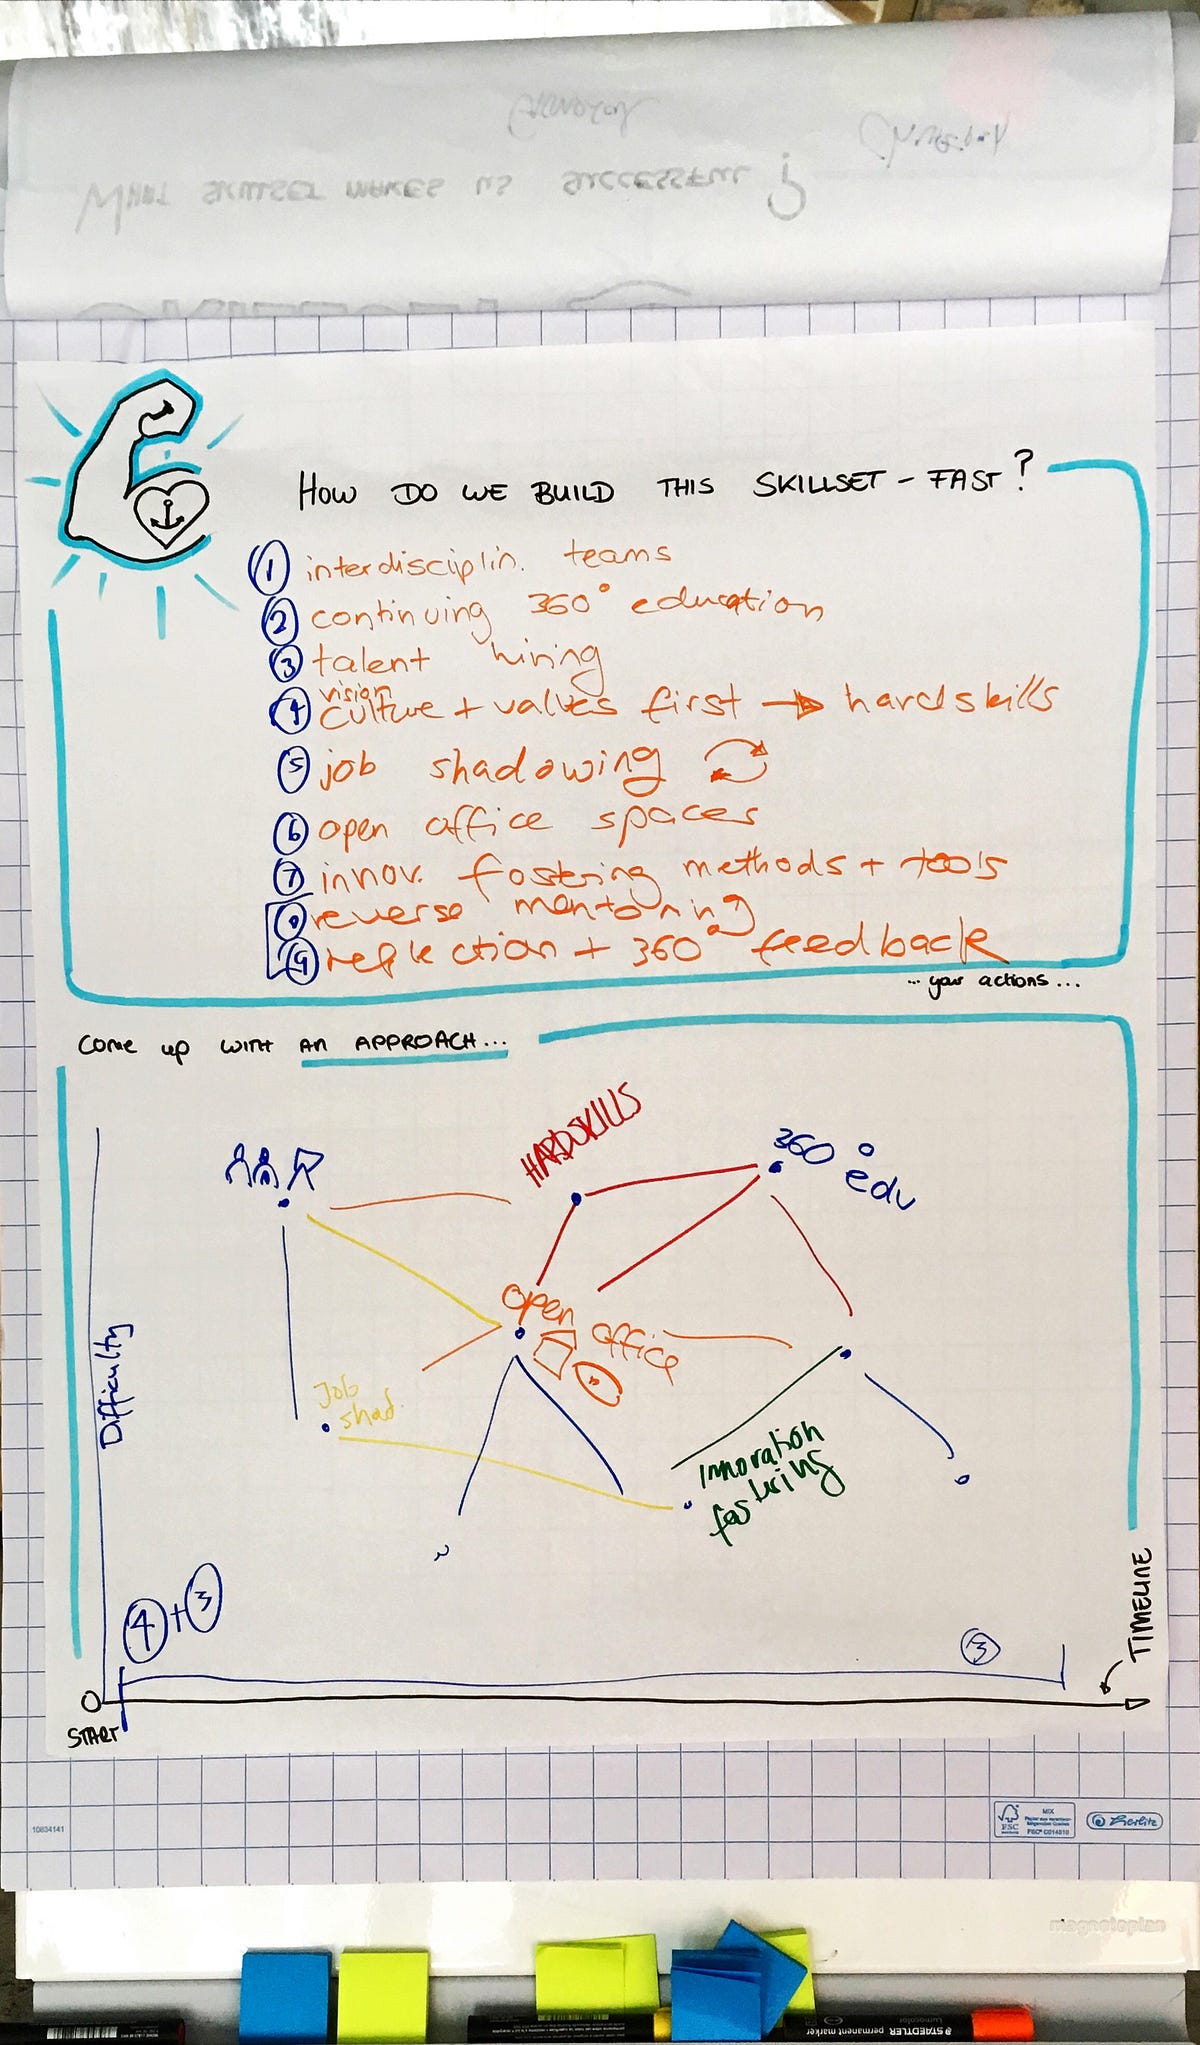 WHAT SKILLSET MAKES US SUCCESSFUL?
HOW DO WE BUILD THIS SKILLSET - FAST?
1 interdisciplin. teams
2 continuing 360° education
3 talent hiring
vision
4 culture + values first → hardskills
5 job shadowing
6 open office spaces
7 innov. fostering methods + tools
8 reverse mentoring
9 reflection + 360° feedback
... your actions ...
COME UP WITH AN APPROACH...
HARDSKILLS
360° edu
Open office
Job shad.
Innovation fostering
Difficulty
4 + 3
3
TIMELINE
0
START
10834141
FSC
MIX
FSC® C014810
Herlitz
magnetoplan
STAEDTLER permanent marker
Lumocolor